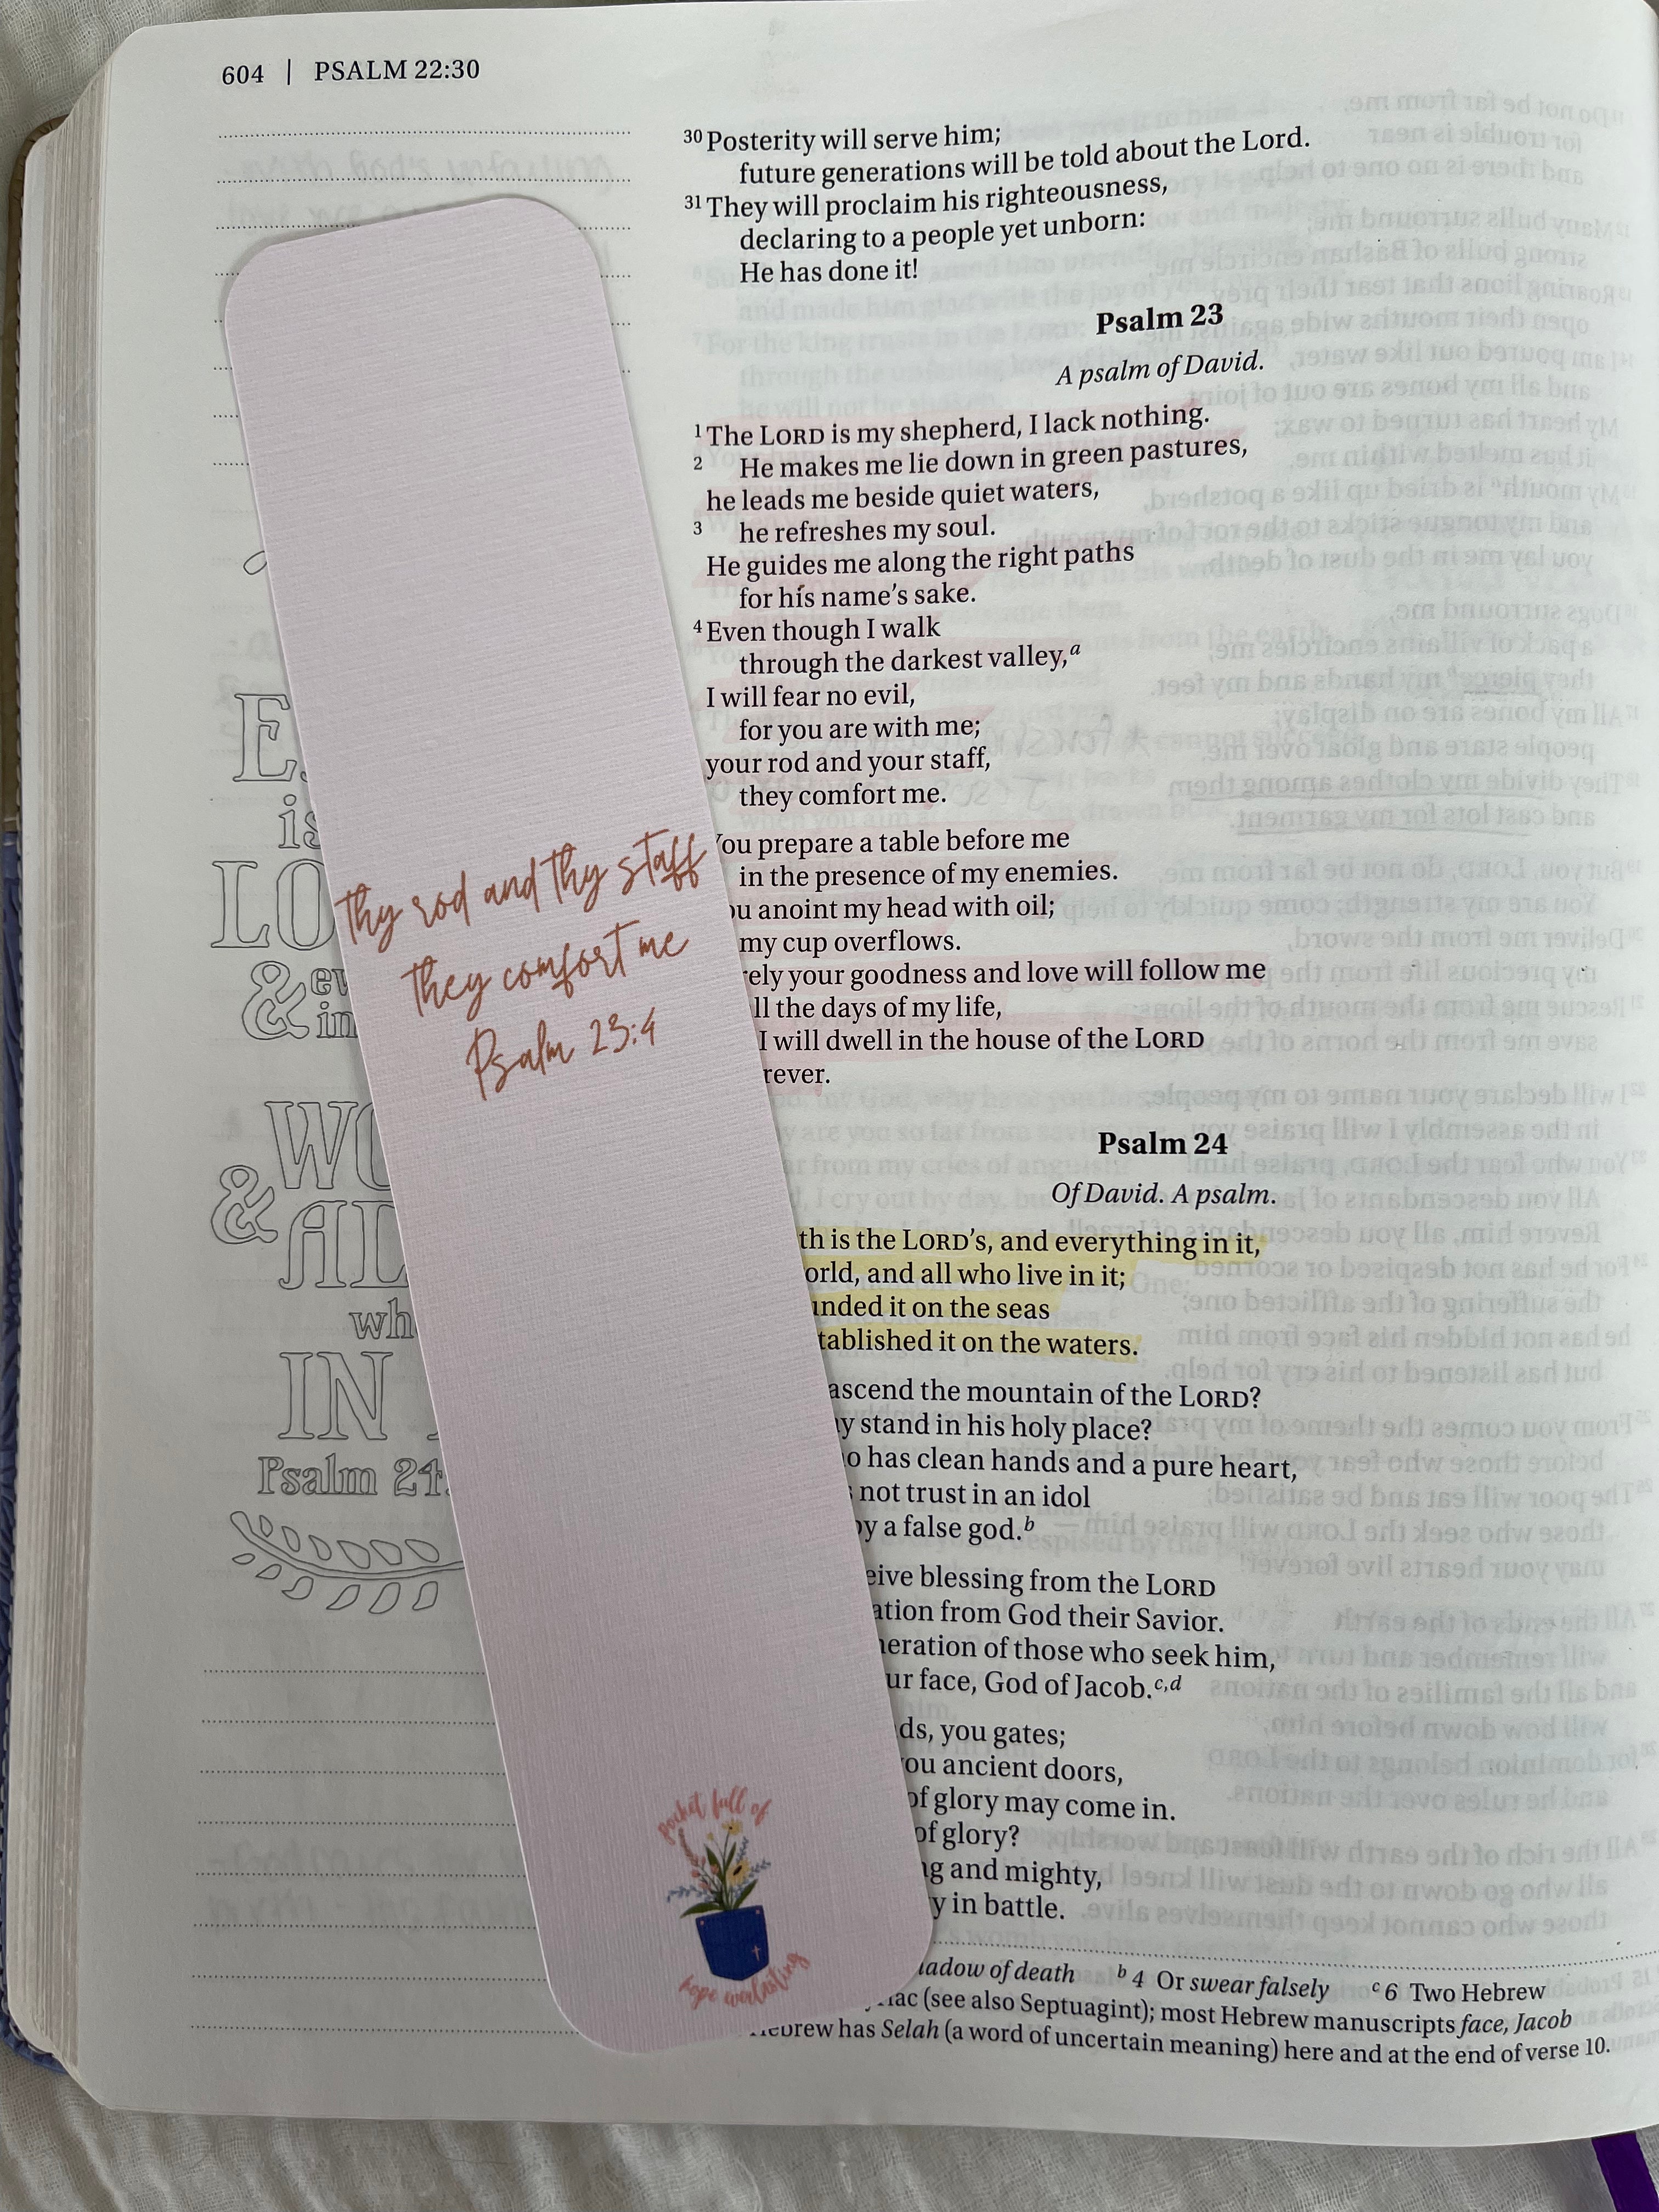 604 | PSALM 22:30
30 Posterity will serve him;
future generations will be told about the Lord.
31 They will proclaim his righteousness,
declaring to a people yet unborn:
He has done it!
Psalm 23
A psalm of David.
1 The LORD is my shepherd, I lack nothing.
2 He makes me lie down in green pastures,
he leads me beside quiet waters,
3 he refreshes my soul.
He guides me along the right paths
for his name's sake.
4 Even though I walk
through the darkest valley,a
I will fear no evil,
for you are with me;
your rod and your staff,
they comfort me.
ou prepare a table before me
in the presence of my enemies.
u anoint my head with oil;
my cup overflows.
ely your goodness and love will follow me
ll the days of my life,
I will dwell in the house of the LORD
rever.
Psalm 24
Of David. A psalm.
th is the LORD's, and everything in it,
orld, and all who live in it;
unded it on the seas
tablished it on the waters.
ascend the mountain of the LORD?
y stand in his holy place?
o has clean hands and a pure heart,
not trust in an idol
by a false god.b
eive blessing from the LORD
ation from God their Savior.
neration of those who seek him,
ur face, God of Jacob.c,d
ds, you gates;
ou ancient doors,
of glory may come in.
of glory?
ng and mighty,
y in battle.
adow of death b 4 Or swear falsely c 6 Two Hebrew
iac (see also Septuagint); most Hebrew manuscripts face, Jacob
ebrew has Selah (a word of uncertain meaning) here and at the end of verse 10.
E
is
LO
& ev
in
WO
& AL
wh
IN
Psalm 24:
Thy rod and thy staff
they comfort me
Psalm 23:4
pocket full of
hope everlasting